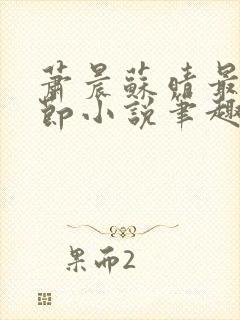 蕭晨蘇晴最
節小說筆趣
果而2